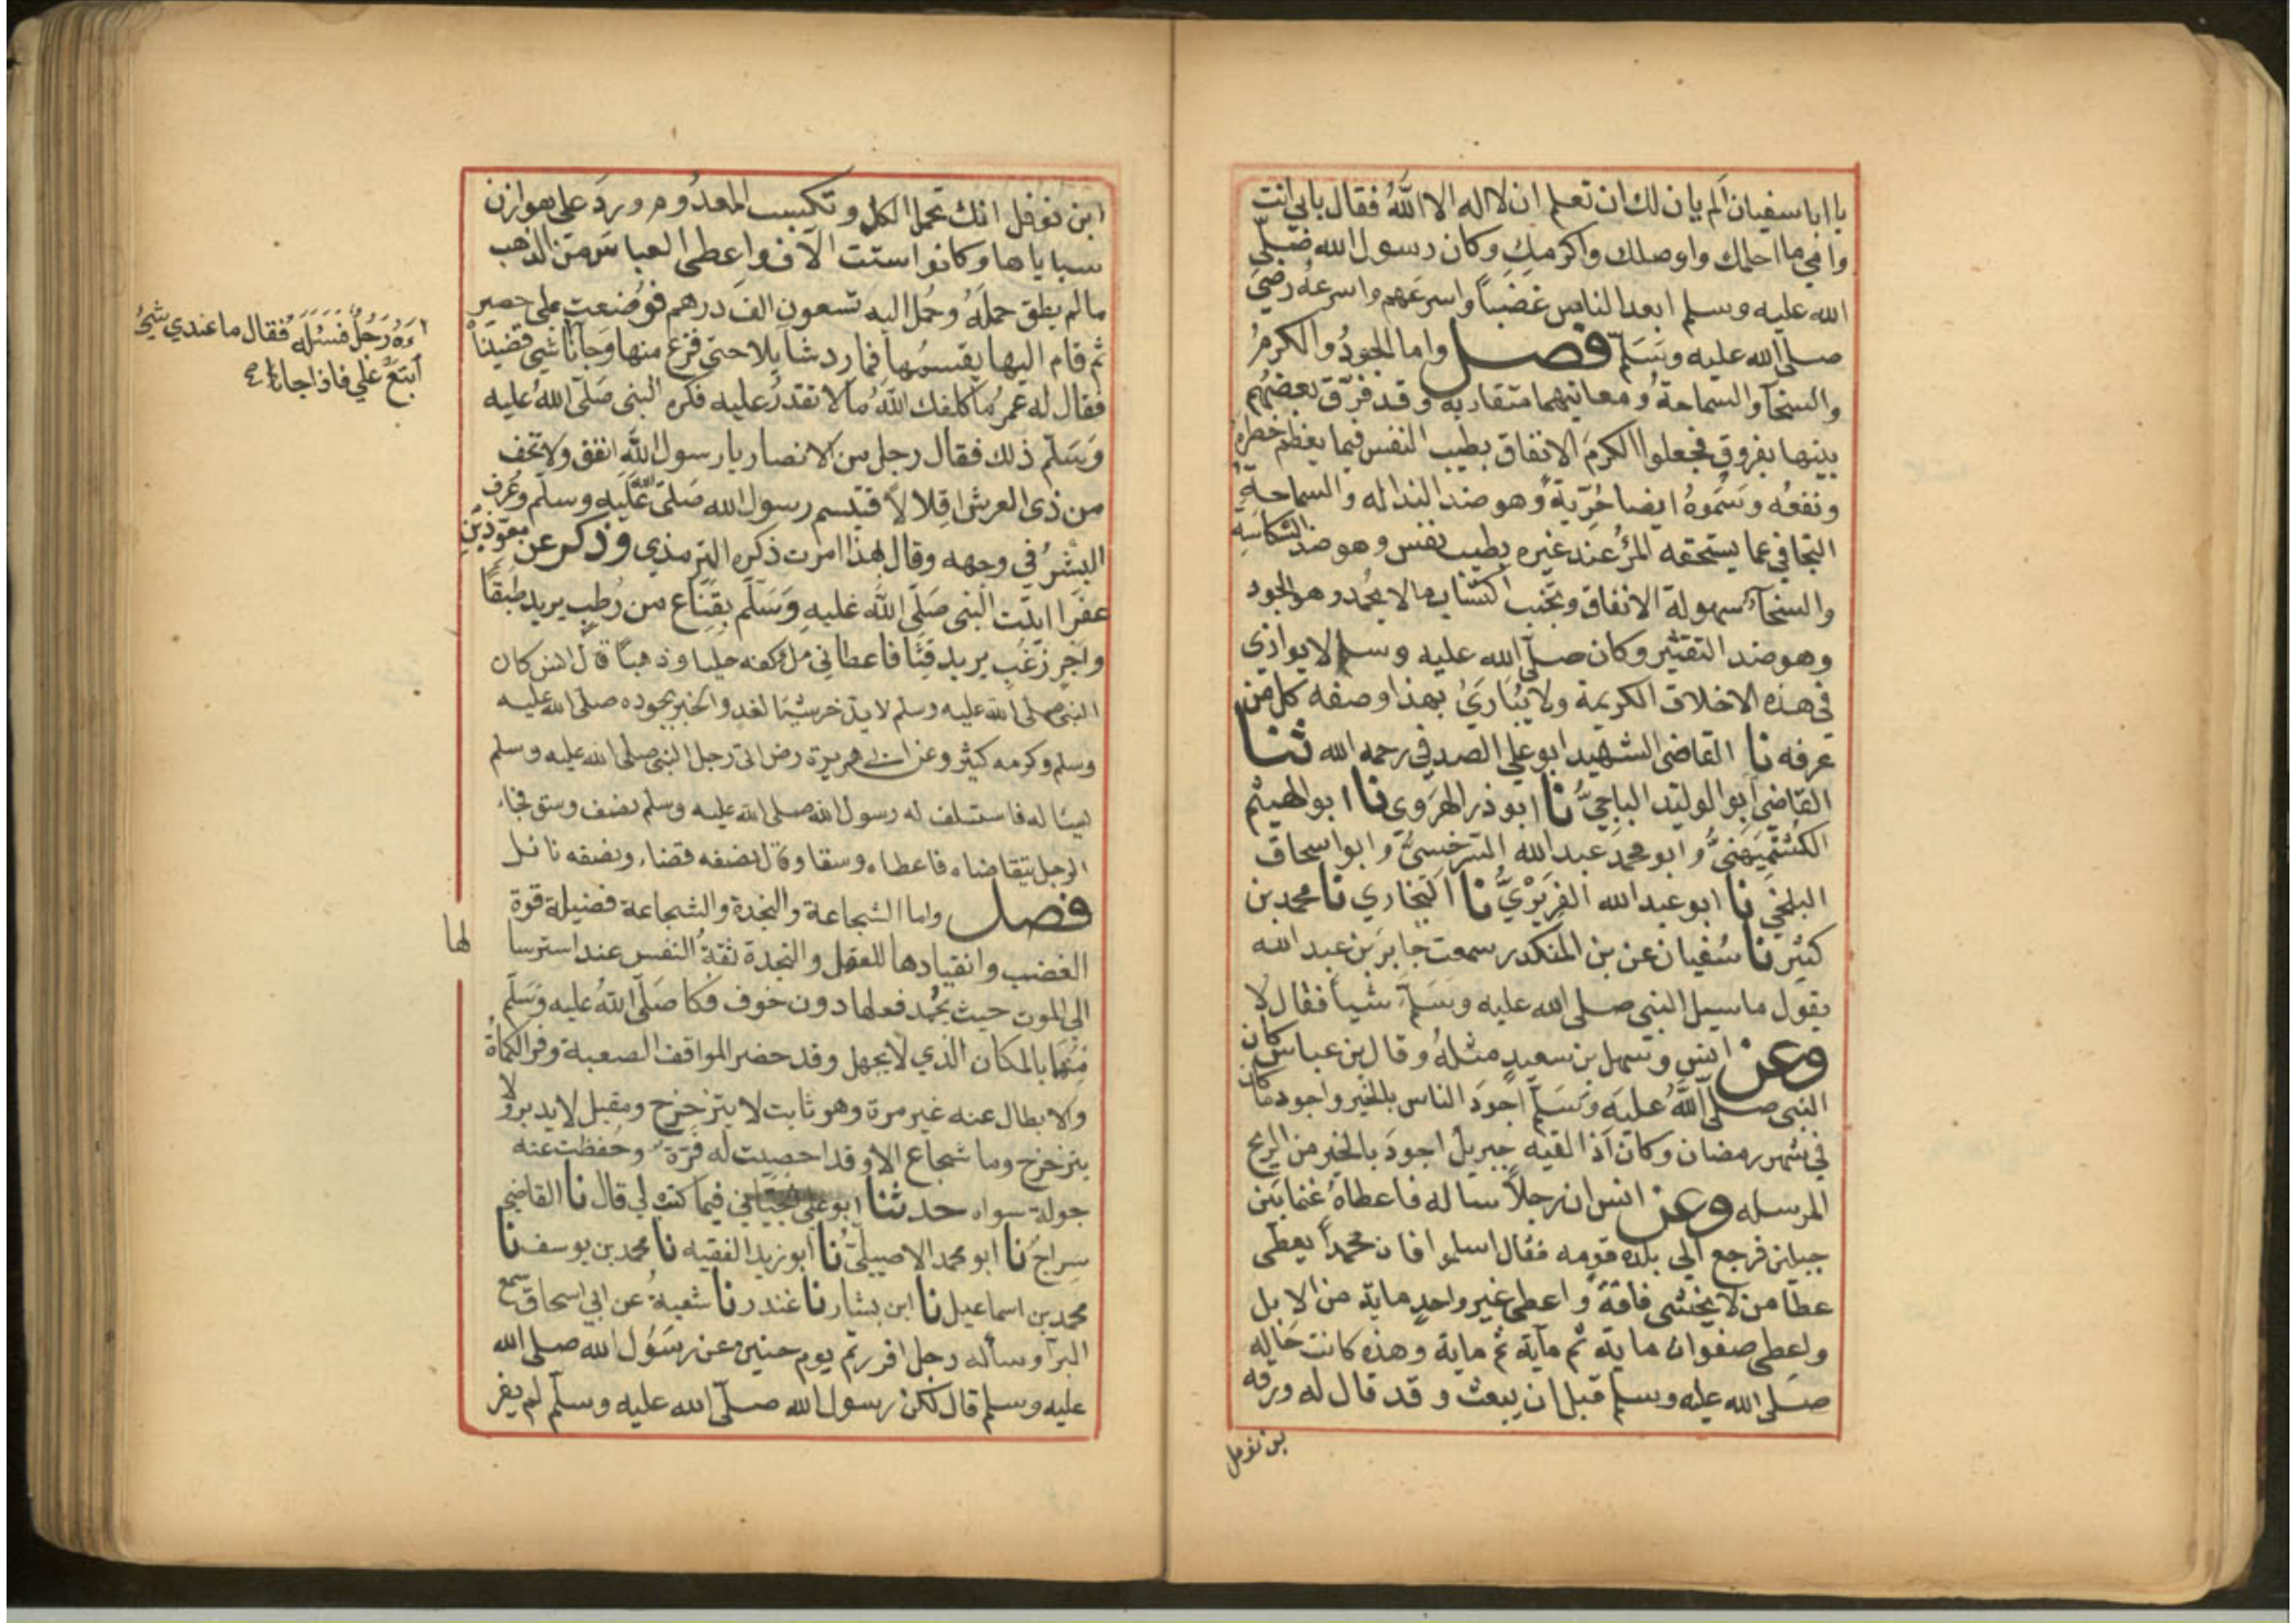 يا ابا سفيان الم يان لك ان تعلم ان لا اله الا اللهُ فقال بابي انت
وامي ما احلمك واوصلك واكرمك وكان رسول الله صلّي
الله عليه وسلم ابعد الناس غضباً واسرعهم واسرعهُ رضيَ
صلّي الله عليه وسَلمّ فصل واما الجودُ والكرمُ
والسخآ والسماحةُ ومعانيهما متقاربة وقد فرّق بعضُهم
بينها بفروق فجعلوا الكرمَ الانفاق بطيب النفس فيما يعظم خطره
ونفعُه وسَمّوهُ ايضا حُرّيةً وهو ضد النداله والسماحةِ
التجافي عما يستحقه المرُ عند غيره بطيب نفس وهو ضد الشكاسةِ
والسخآءُ سهولة الانفاق وتجنب اكتساب مالا يحمد وهو الجود
وهو ضد التقتير وكان صلّي الله عليه وسلم لا يوازي
في هذه الاخلاق الكريمة ولا يُبَاريُ بهذا وصفه كل من
عرفه نا القاضي الشهيد ابو علي الصدفي رحمه الله ثنا
القاضي ابو الوليد الباجيُّ نا ابو ذر الهروي نا ابو الهيثم
الكشميهنيُّ وابو محمدَ عبد الله السرخسيُّ وابو اسحاق
البلخي نا ابو عبد الله الفربريُّ نا البخاري نا محمد بن
كثير نا سُفيان عن بن المنكدر سمعت جابرَ بن عبد الله
يقول ما سيل النبي صلي الله عليه وسَلّمَ شياً فقال لا
وعن انس وسهل بن سعيدٍ مثلهُ وقال بن عباس كان
النبي صلّي اللهُ عليه وسَلّم اجودَ الناس بالخير واجود ما كان
في شهر رمضان وكان اذا لقيه جبريلُ اجودَ بالخير من الريح
المرسله وعن انس ان رجلاً ساله فاعطاهُ غنما بين
جبلين فرجع الي بلده قومه فقال اسلموا فان محمداً يعطي
عطآ من لا يخشي فاقةً واعطي غير واحدٍ ماية من الابل
واعطي صفوان ماية ثم مآية ثم ماية وهذه كانت حَاله
صلي الله عليه وسلم قبل ان يبعث وقد قال له ورقه
بن نوفل
ابن نوفل انك تحمل الكل وتكسب المعدُوم وردَ علي هوازن
سباياها وكانوا ستت الآف واعطي العباس من الذهب
مالم يطق حملَهُ وحُمل اليه تسعون الفَ درهم فوُضعت علي حصير
ثم قام اليها يقسمُها فما رد سَايلا حتي فرغ منها وجَآ
اَءَهُ رَجُلٌ فَسَئلَه فقال ما عندي شئ
اَبتعْ عَلَي فاذا جانا صح
نا شي قضيناْ
فقال له عمرُ ما كلفك اللهُ مالا تقدرُ عليه فكره النبي صَلّي اللهُ عليه
وَسَلّم ذلك فقال رجل من الانصار يارسول اللهِ انفق ولا تخف
من ذي العرش اقلالاً فتبسم رسول الله صَلّي اللهُ عَلَيه وسلّم وعُرف
البشرُ في وجهه وقال بهذا امرت ذكره الترمذي وذكر عن معوّذ بْنِ
عفرا اتيت النبي صَلّي اللهُ عَليهِ وَسَلّم بقِنَاع من رُطبٍ يريد طبقاً
واَجرٍ زغبٍ يريد قثا فاعطاني مل كفه حليا وذهباً قال انس كان
النبي صلي الله عليه وسلم لا يدّخر شيئا لغد والخبر بجوده صلي الله عليه
وسلم وكرمه كثير وعن ابي هريرة رض اتي رجل النبي صلي الله عليه وسلم
يسئاله فاستسلف له رسول الله صلي الله عليه وسلم نصف وسق فجاء
الرجل يتقاضاه فاعطاه وسقا وقال نصفه قضاء ونصفه نائل
فصل واما الشجاعة والنجدة والشجاعة فضيلة قوة
الغضب وانقيادها للعقل والنجدة ثقةُ النفس عند استرسا
لها
الي الموت حيث يحُمد فعلها دون خوف فكا صَلّي اللهُ عليه وَسَلّم
منهُمَا بالمكان الذي لا يجهل وقد حضر المواقف الصعبة وفر الكماةُ
والابطال عنه غير مرة وهو ثابت لا يتزحزح ومقبل لا يدبر ولا
يتزحزح وما شجاع الا وقد احصيت له فرّة وحُفظت عنه
جولة سواه حدثنا ابو علي الجيَّاني فيما كتبه لي قال نا القاضي
سراج نا ابو محمد الاصيليّ نا ابو زيد الفقيه نا محمد بن يوسف نا
محمد بن اسماعيل نا ابن بشار نا غندر نا شعبةُ عن ابي اسحاق سمع
البرآ وسأله رجل افررتم يوم حنين عن رسُول الله صلي الله
عليه وسلم قال لكن رسول الله صلّي الله عليه وسلّم لم يفر